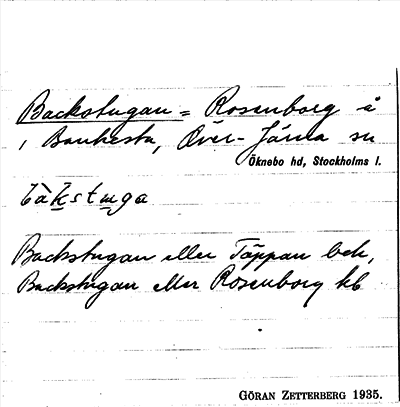 Backstugan = Rosenborg å
, Bankesta, Över-Järna sn
Öknebo hd, Stockholms l.
bàkstuga
Backstugan eller Täppan bek,
Backstugan eller Rosenborg kb
GÖRAN ZETTERBERG 1935.